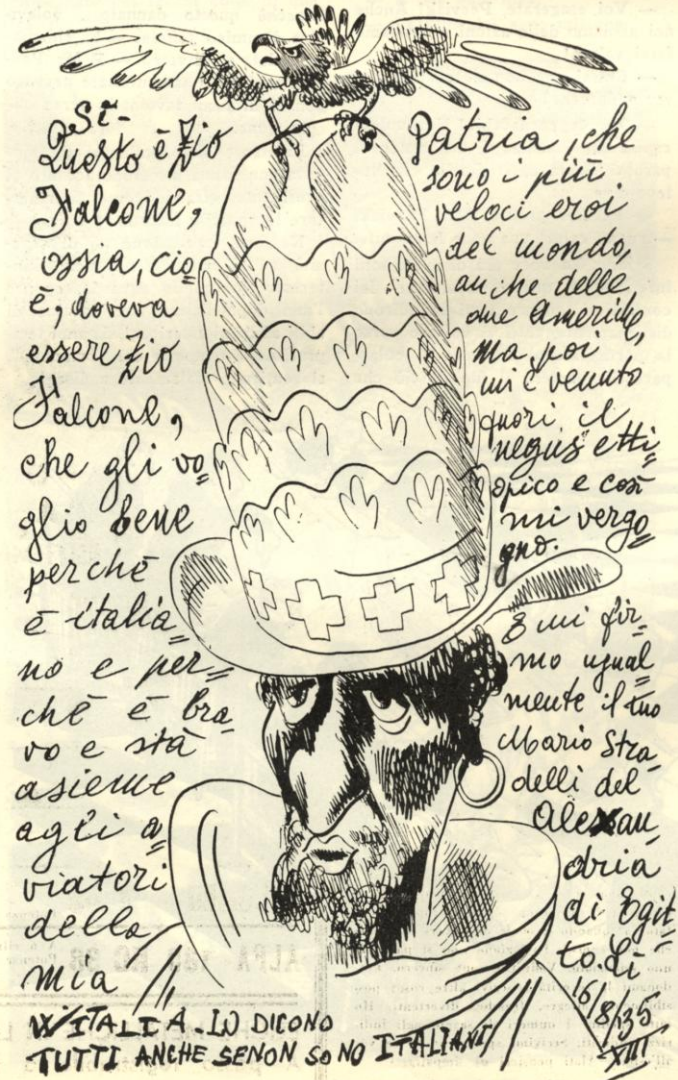 Sì-
Questo è Zio
Falcone,
ossia, cio=
è, doveva
essere Zio
Falcone,
che gli vo=
glio bene
perchè
è italia=
no e per=
chè è bra=
vo e stà
asieme
agli a=
viatori
della
mia
Patria, che
sono i più
veloci eroi
del mondo,
anche delle
due Americhe,
ma poi
mi è venuto
fuori il
negus etti=
opico e così
mi vergo=
gno.
E mi fir=
mo ugual=
mente il tuo
Mario Stra=
delli del
Alessan=
dria
di Egit=
to. Li
16/8/35
XIII
W ITALIA. LO DICONO
TUTTI ANCHE SENON SONO ITALIANI